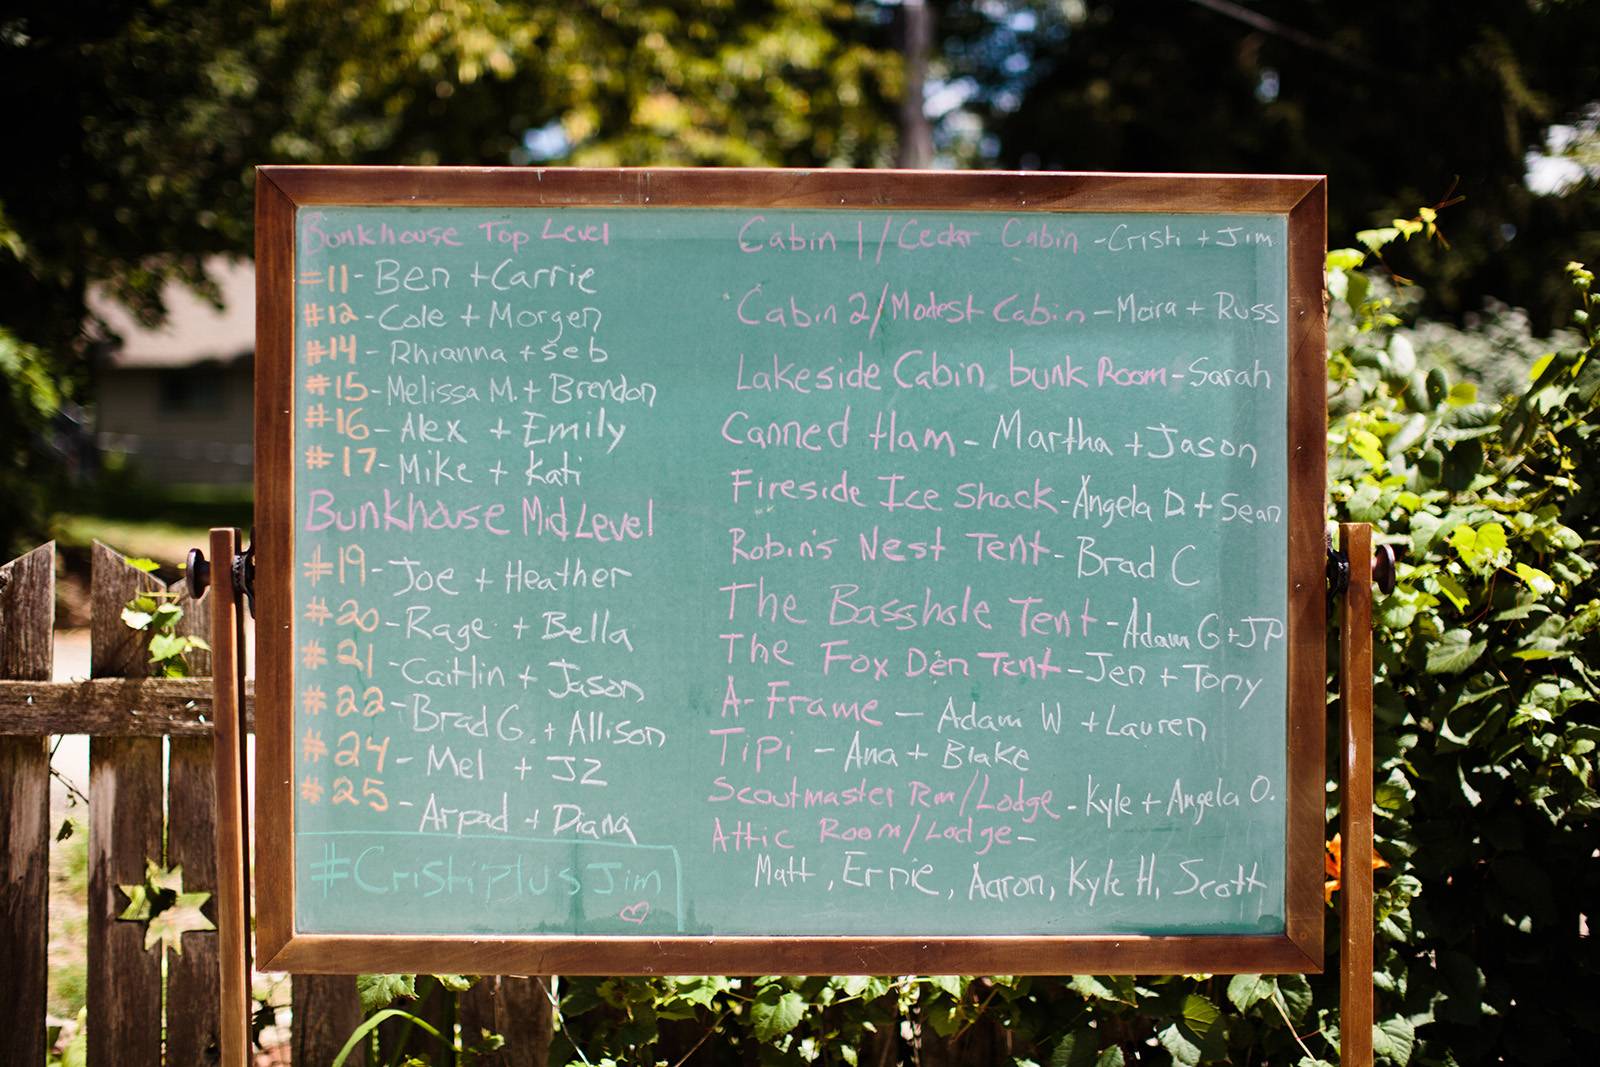 Bunkhouse Top Level
#11 - Ben + Carrie
#12 - Cole + Morgen
#14 - Rhianna + seb
#15 - Melissa M. + Brendon
#16 - Alex + Emily
#17 - Mike + Kati
Bunkhouse Mid Level
#19 - Joe + Heather
#20 - Rage + Bella
#21 - Caitlin + Jason
#22 - Brad G. + Allison
#24 - Mel + JZ
#25 - Arpad + Diana
#CristiplusJim
Cabin 1/Cedar Cabin - Cristi + Jim
Cabin 2/Modest Cabin - Moira + Russ
Lakeside Cabin bunk Room - Sarah
Canned Ham - Martha + Jason
Fireside Ice Shack - Angela D. + Sean
Robin's Nest Tent - Brad C
The Basshole Tent - Adam G + JP
The Fox Den Tent - Jen + Tony
A-Frame - Adam W + Lauren
Tipi - Ana + Blake
Scoutmaster Rm/Lodge - Kyle + Angela O.
Attic Room/Lodge -
Matt, Ernie, Aaron, Kyle H, Scott